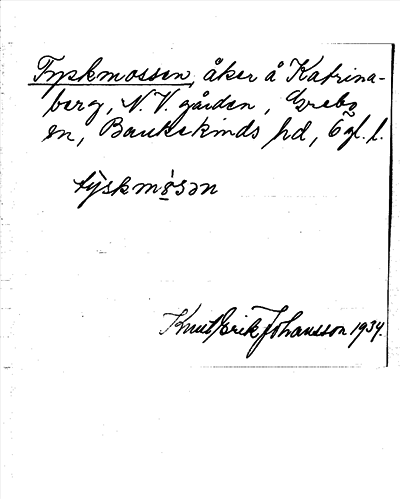 Tyskmossen, åker å Katrina-
berg, N.V. gården, Grebo
sn, Bankekinds hd, Ögl. l.
tỳskmòsən
Knut Erik Johansson 1934.